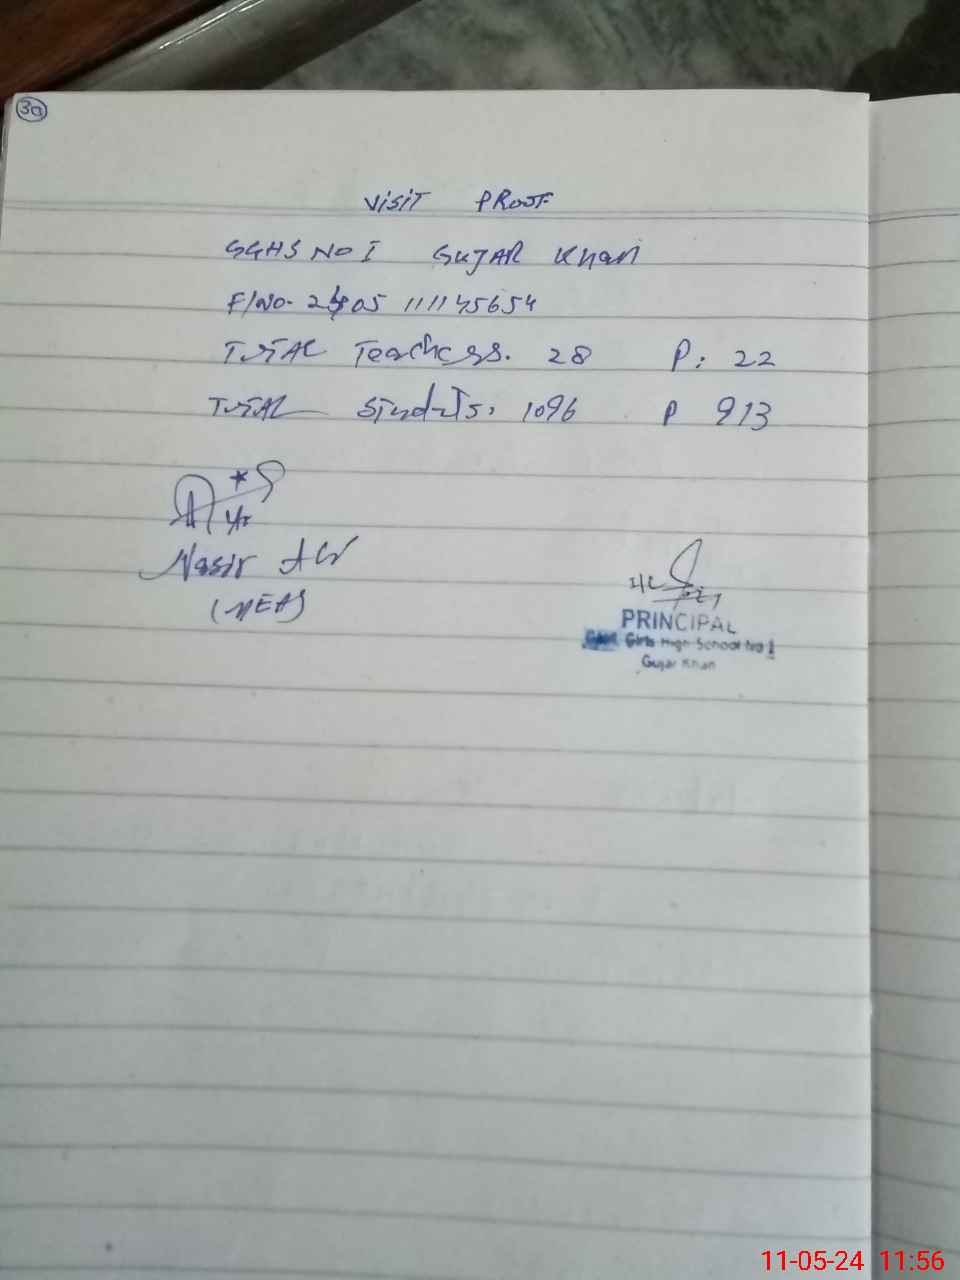 30
VISIT PROOF
GGHS NO I GUJAR Khan
F/No. 2405 111145654
TOTAL Teachers. 28 P: 22
TOTAL Students. 1096 P 913
Nasir Ali
(MEA)
I/C
PRINCIPAL
Girls High School No 1
Gujar Khan
11-05-24 11:56